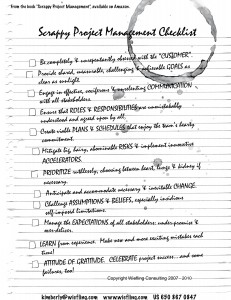 "From the book "Scrappy Project Management", available on Amazon.
Scrappy Project Management Checklist
Be completely & unrepentantly obsessed with the "CUSTOMER".
Provide shared, measurable, challenging & achievable GOALS as
clear as sunlight.
Engage in effective, vociferous & unrelenting COMMUNICATION
with all stakeholders.
Ensure that ROLES & RESPONSIBILITIES are unmistakably
understood and agreed upon by all.
Create viable PLANS & SCHEDULES that enjoy the team's hearty
commitment.
Mitigate big, hairy, abominable RISKS & implement innovative
ACCELERATORS.
PRIORITIZE ruthlessly, choosing between heart, lungs & kidneys if
necessary.
Anticipate and accommodate necessary & inevitable CHANGE.
Challenge ASSUMPTIONS & BELIEFS, especially insidious
self-imposed limitations.
Manage the EXPECTATIONS of all stakeholders: under-promise &
over-deliver.
LEARN from experience. Make new and more exciting mistakes each
time!
ATTITUDE OF GRATITUDE. CELEBRATE project success... and some
failures, too!
Copyright Wiefling Consulting 2007 - 2010
kimberly@wiefling.com www.wiefling.com US 650 867 0847